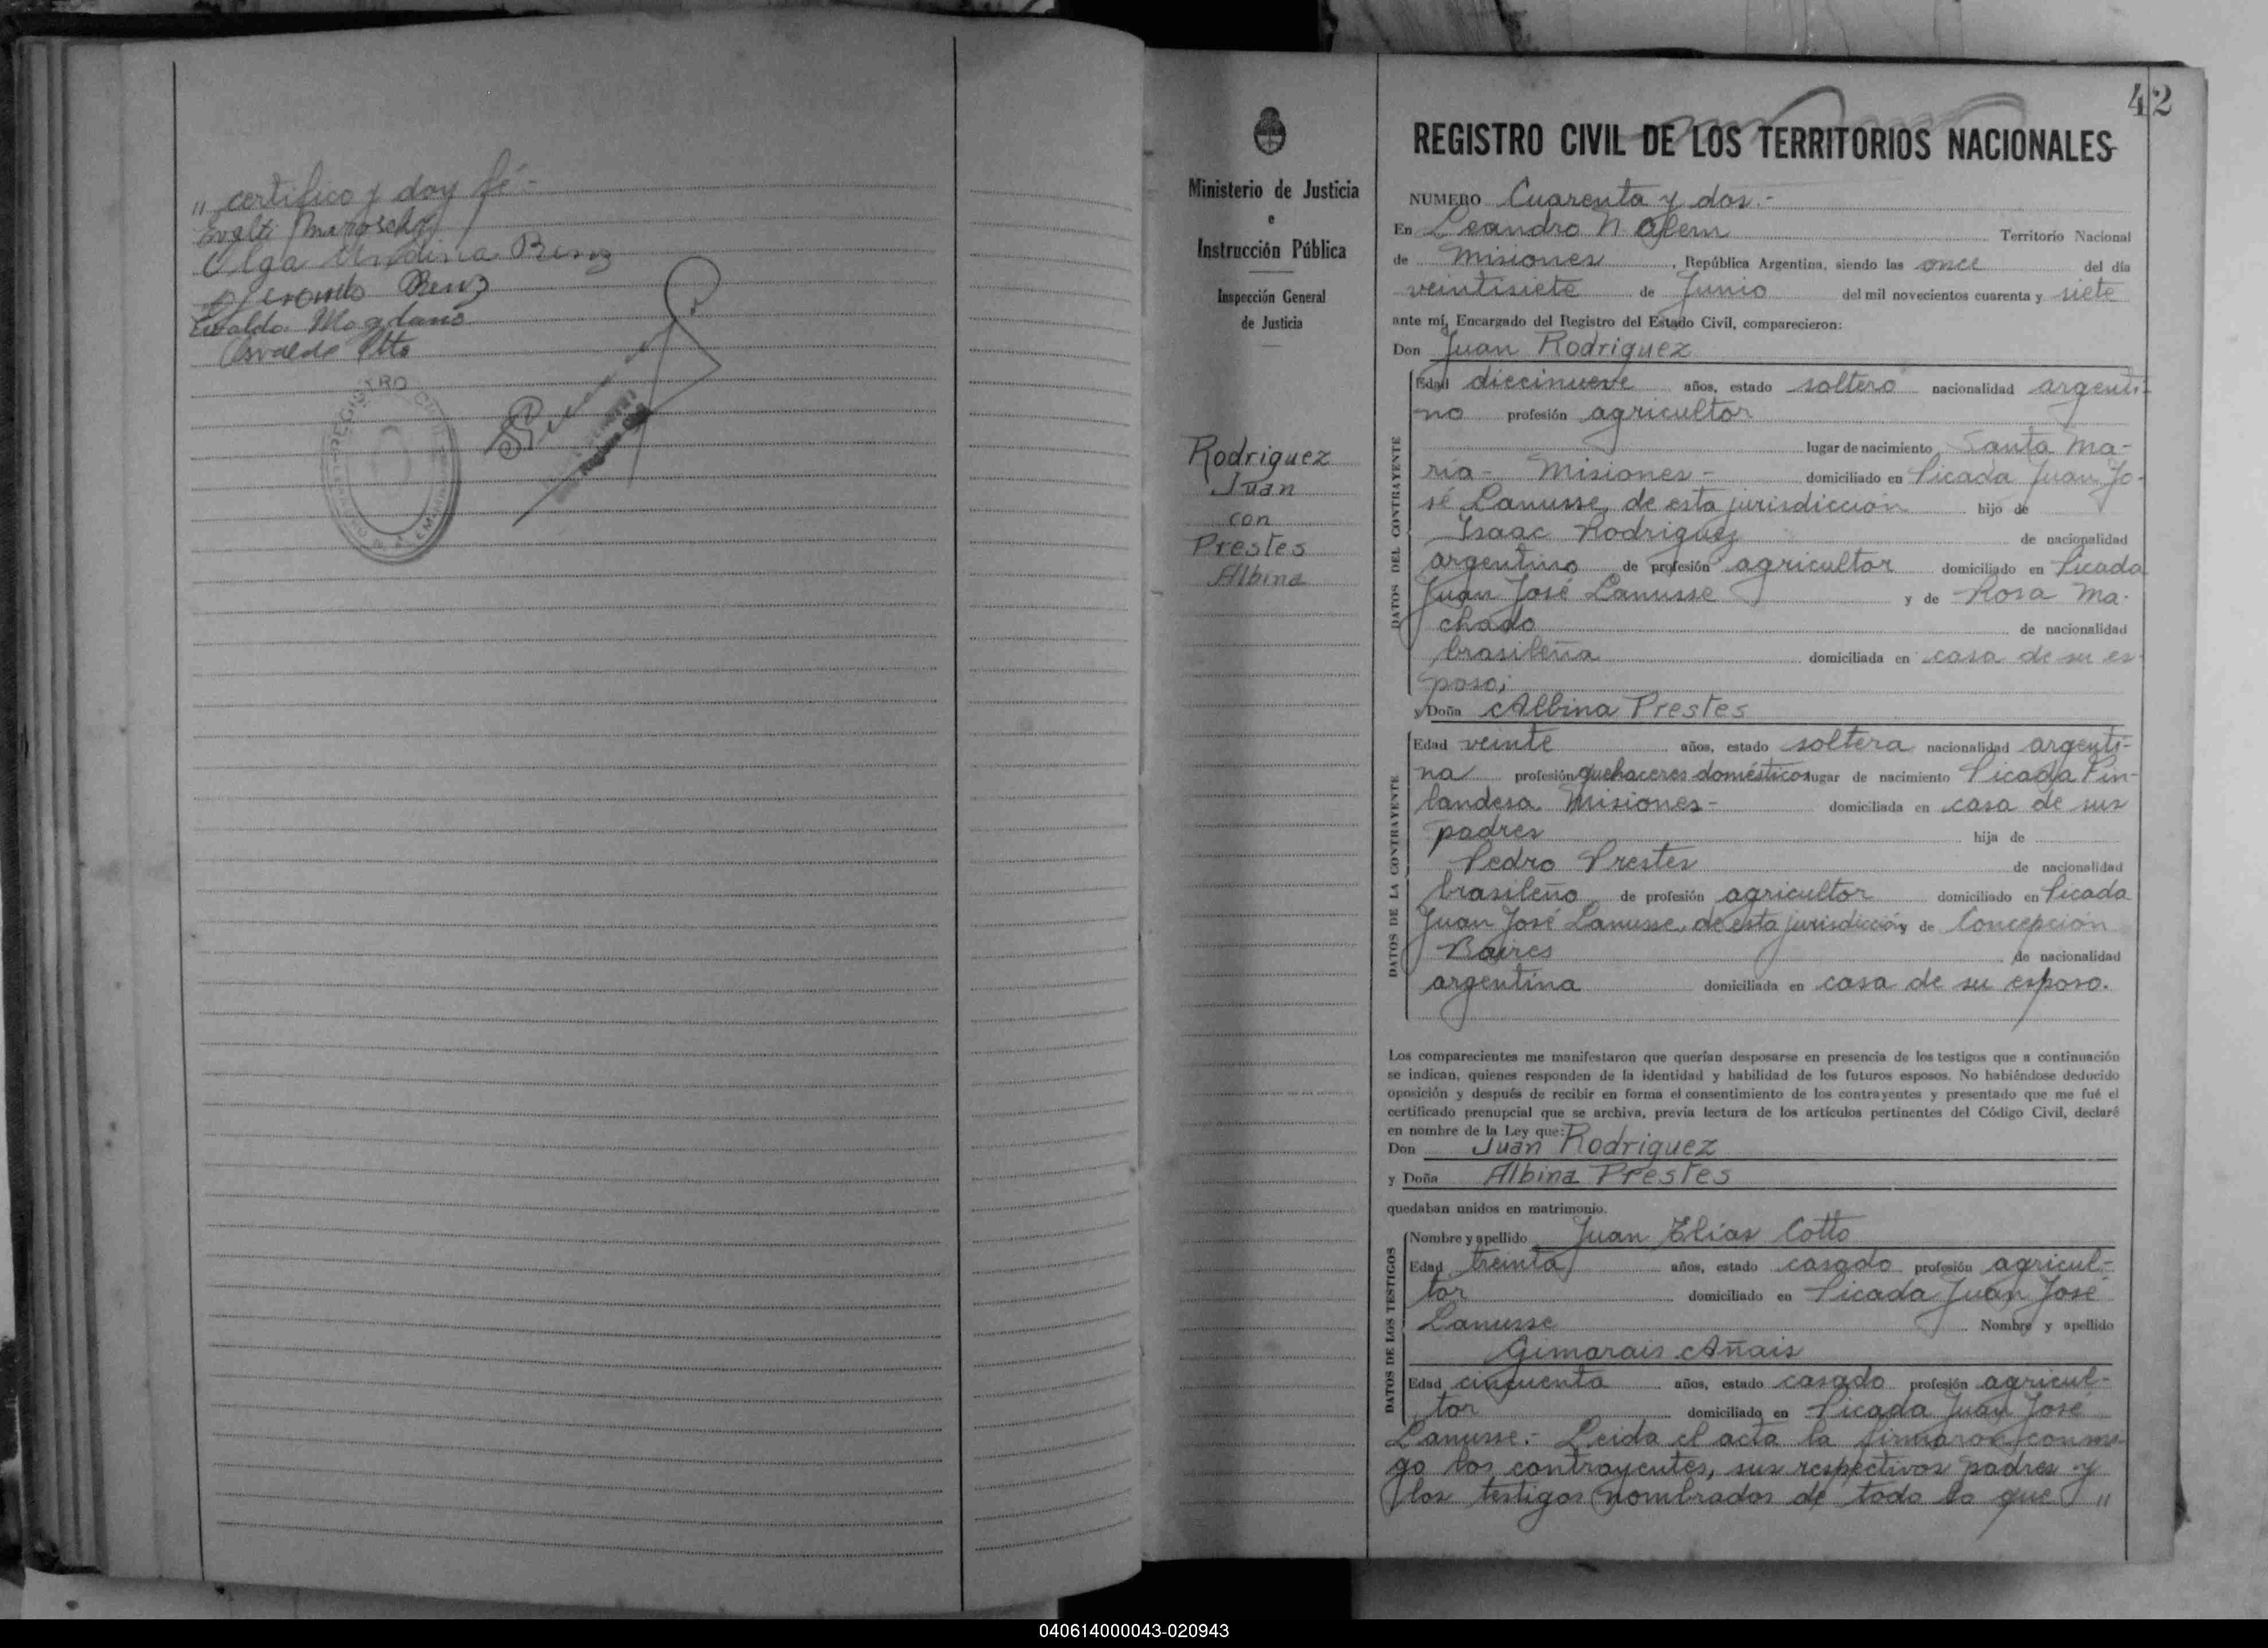 " certifico y doy fé.-
Olga Undina Benz
Benz
Osvaldo Otto
REGISTRO CIVIL
Ministerio de Justicia
e
Instrucción Pública
Inspección General
de Justicia
Rodriguez
Juan
con
Prestes
Albina
42
REGISTRO CIVIL DE LOS TERRITORIOS NACIONALES
NUMERO Cuarenta y dos.-
En Leandro N. Alem Territorio Nacional
de Misiones, República Argentina, siendo las once del día
veintisiete de Junio del mil novecientos cuarenta y siete
ante mí, Encargado del Registro del Estado Civil, comparecieron:
Don Juan Rodriguez
DATOS DEL CONTRAYENTE
Edad diecinueve años, estado soltero nacionalidad argenti-
no profesión agricultor
lugar de nacimiento Santa Ma-
ría - Misiones - domiciliado en Picada Juan Jo-
sé Lanusse, de esta jurisdicción hijo de
Isaac Rodriguez de nacionalidad
argentino de profesión agricultor domiciliado en Picada
Juan José Lanusse y de Rosa Ma-
chado de nacionalidad
brasileña domiciliada en casa de su es-
poso;
y Doña Albina Prestes
DATOS DE LA CONTRAYENTE
Edad veinte años, estado soltera nacionalidad argenti-
na profesión quehaceres domésticos lugar de nacimiento Picada Fin-
landesa Misiones - domiciliada en casa de sus
padres hija de
Pedro Prestes de nacionalidad
brasileño de profesión agricultor domiciliado en Picada
Juan José Lanusse, de esta jurisdicción y de Concepción
Baires de nacionalidad
argentina domiciliada en casa de su esposo.
Los comparecientes me manifestaron que querían desposarse en presencia de los testigos que a continuación
se indican, quienes responden de la identidad y habilidad de los futuros esposos. No habiéndose deducido
oposición y después de recibir en forma el consentimiento de los contrayentes y presentado que me fué el
certificado prenupcial que se archiva, previa lectura de los artículos pertinentes del Código Civil, declaré
en nombre de la Ley que:
Don Juan Rodriguez
y Doña Albina Prestes
quedaban unidos en matrimonio.
DATOS DE LOS TESTIGOS
Nombre y apellido Juan Elías Cotto
Edad treinta años, estado casado profesión agricul-
tor domiciliado en Picada Juan José
Lanusse Nombre y apellido
Gimarais Añais
Edad cincuenta años, estado casado profesión agricul-
tor domiciliado en Picada Juan José
Lanusse.- Leida el acta la firmaron conmi-
go los contrayentes, sus respectivos padres y
los testigos nombrados de todo lo que "
040614000043-020943